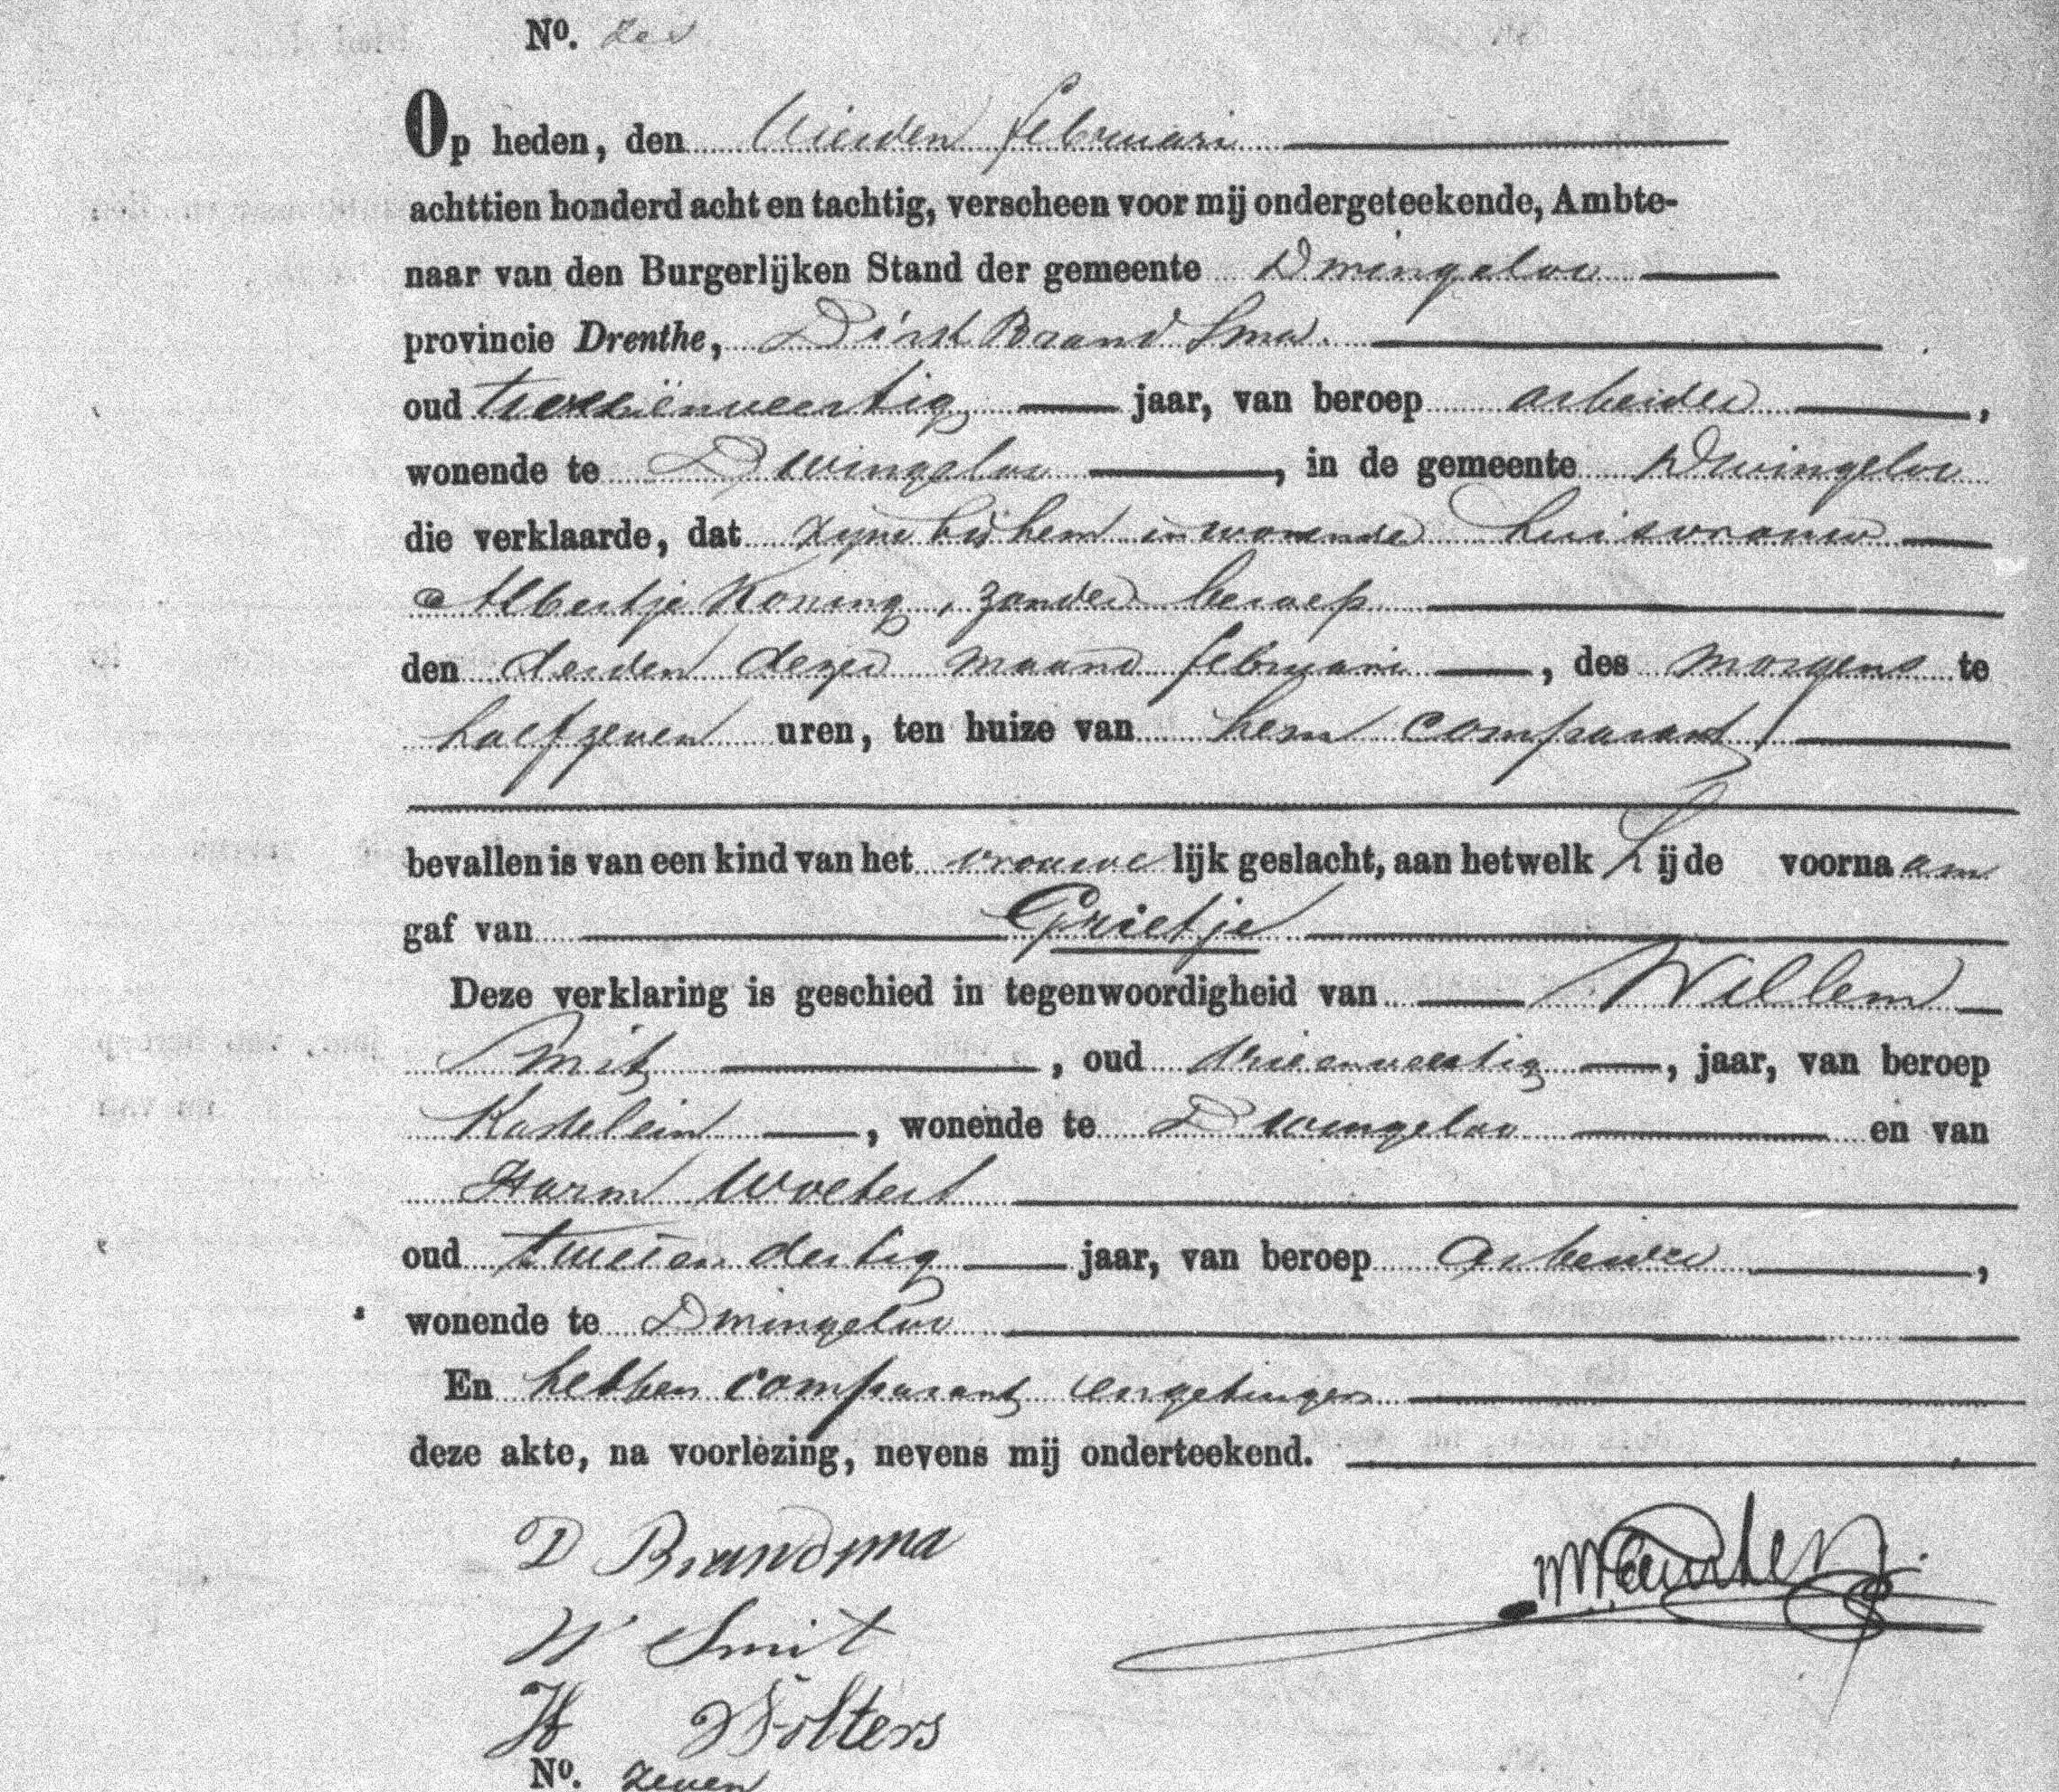 No. zes
Op heden, den vierden februari
achttien honderd acht en tachtig, verscheen voor mij ondergeteekende, Ambte-
naar van den Burgerlijken Stand der gemeente Dwingeloo
provincie Drenthe, Dirk Brandsma.
oud tweeënveertig jaar, van beroep arbeider,
wonende te Dwingeloo, in de gemeente Dwingeloo
die verklaarde, dat zijne bij hem inwonende huisvrouw
Albertje Koning, zonder beroep
den derden dezer maand februari, des morgens te
half zeven uren, ten huize van hem comparant
bevallen is van een kind van het vrouwelijk geslacht, aan hetwelk hij de voornaam
gaf van Grietje
Deze verklaring is geschied in tegenwoordigheid van Willem
Smit, oud drieenveertig, jaar, van beroep
Kastelein, wonende te Dwingeloo en van
Harm Wolters
oud tweeendertig jaar, van beroep arbeider,
wonende te Dwingeloo
En hebben comparant en getuigen
deze akte, na voorlezing, nevens mij onderteekend.
D Brandsma
W Smit
H Wolters
No. zeven